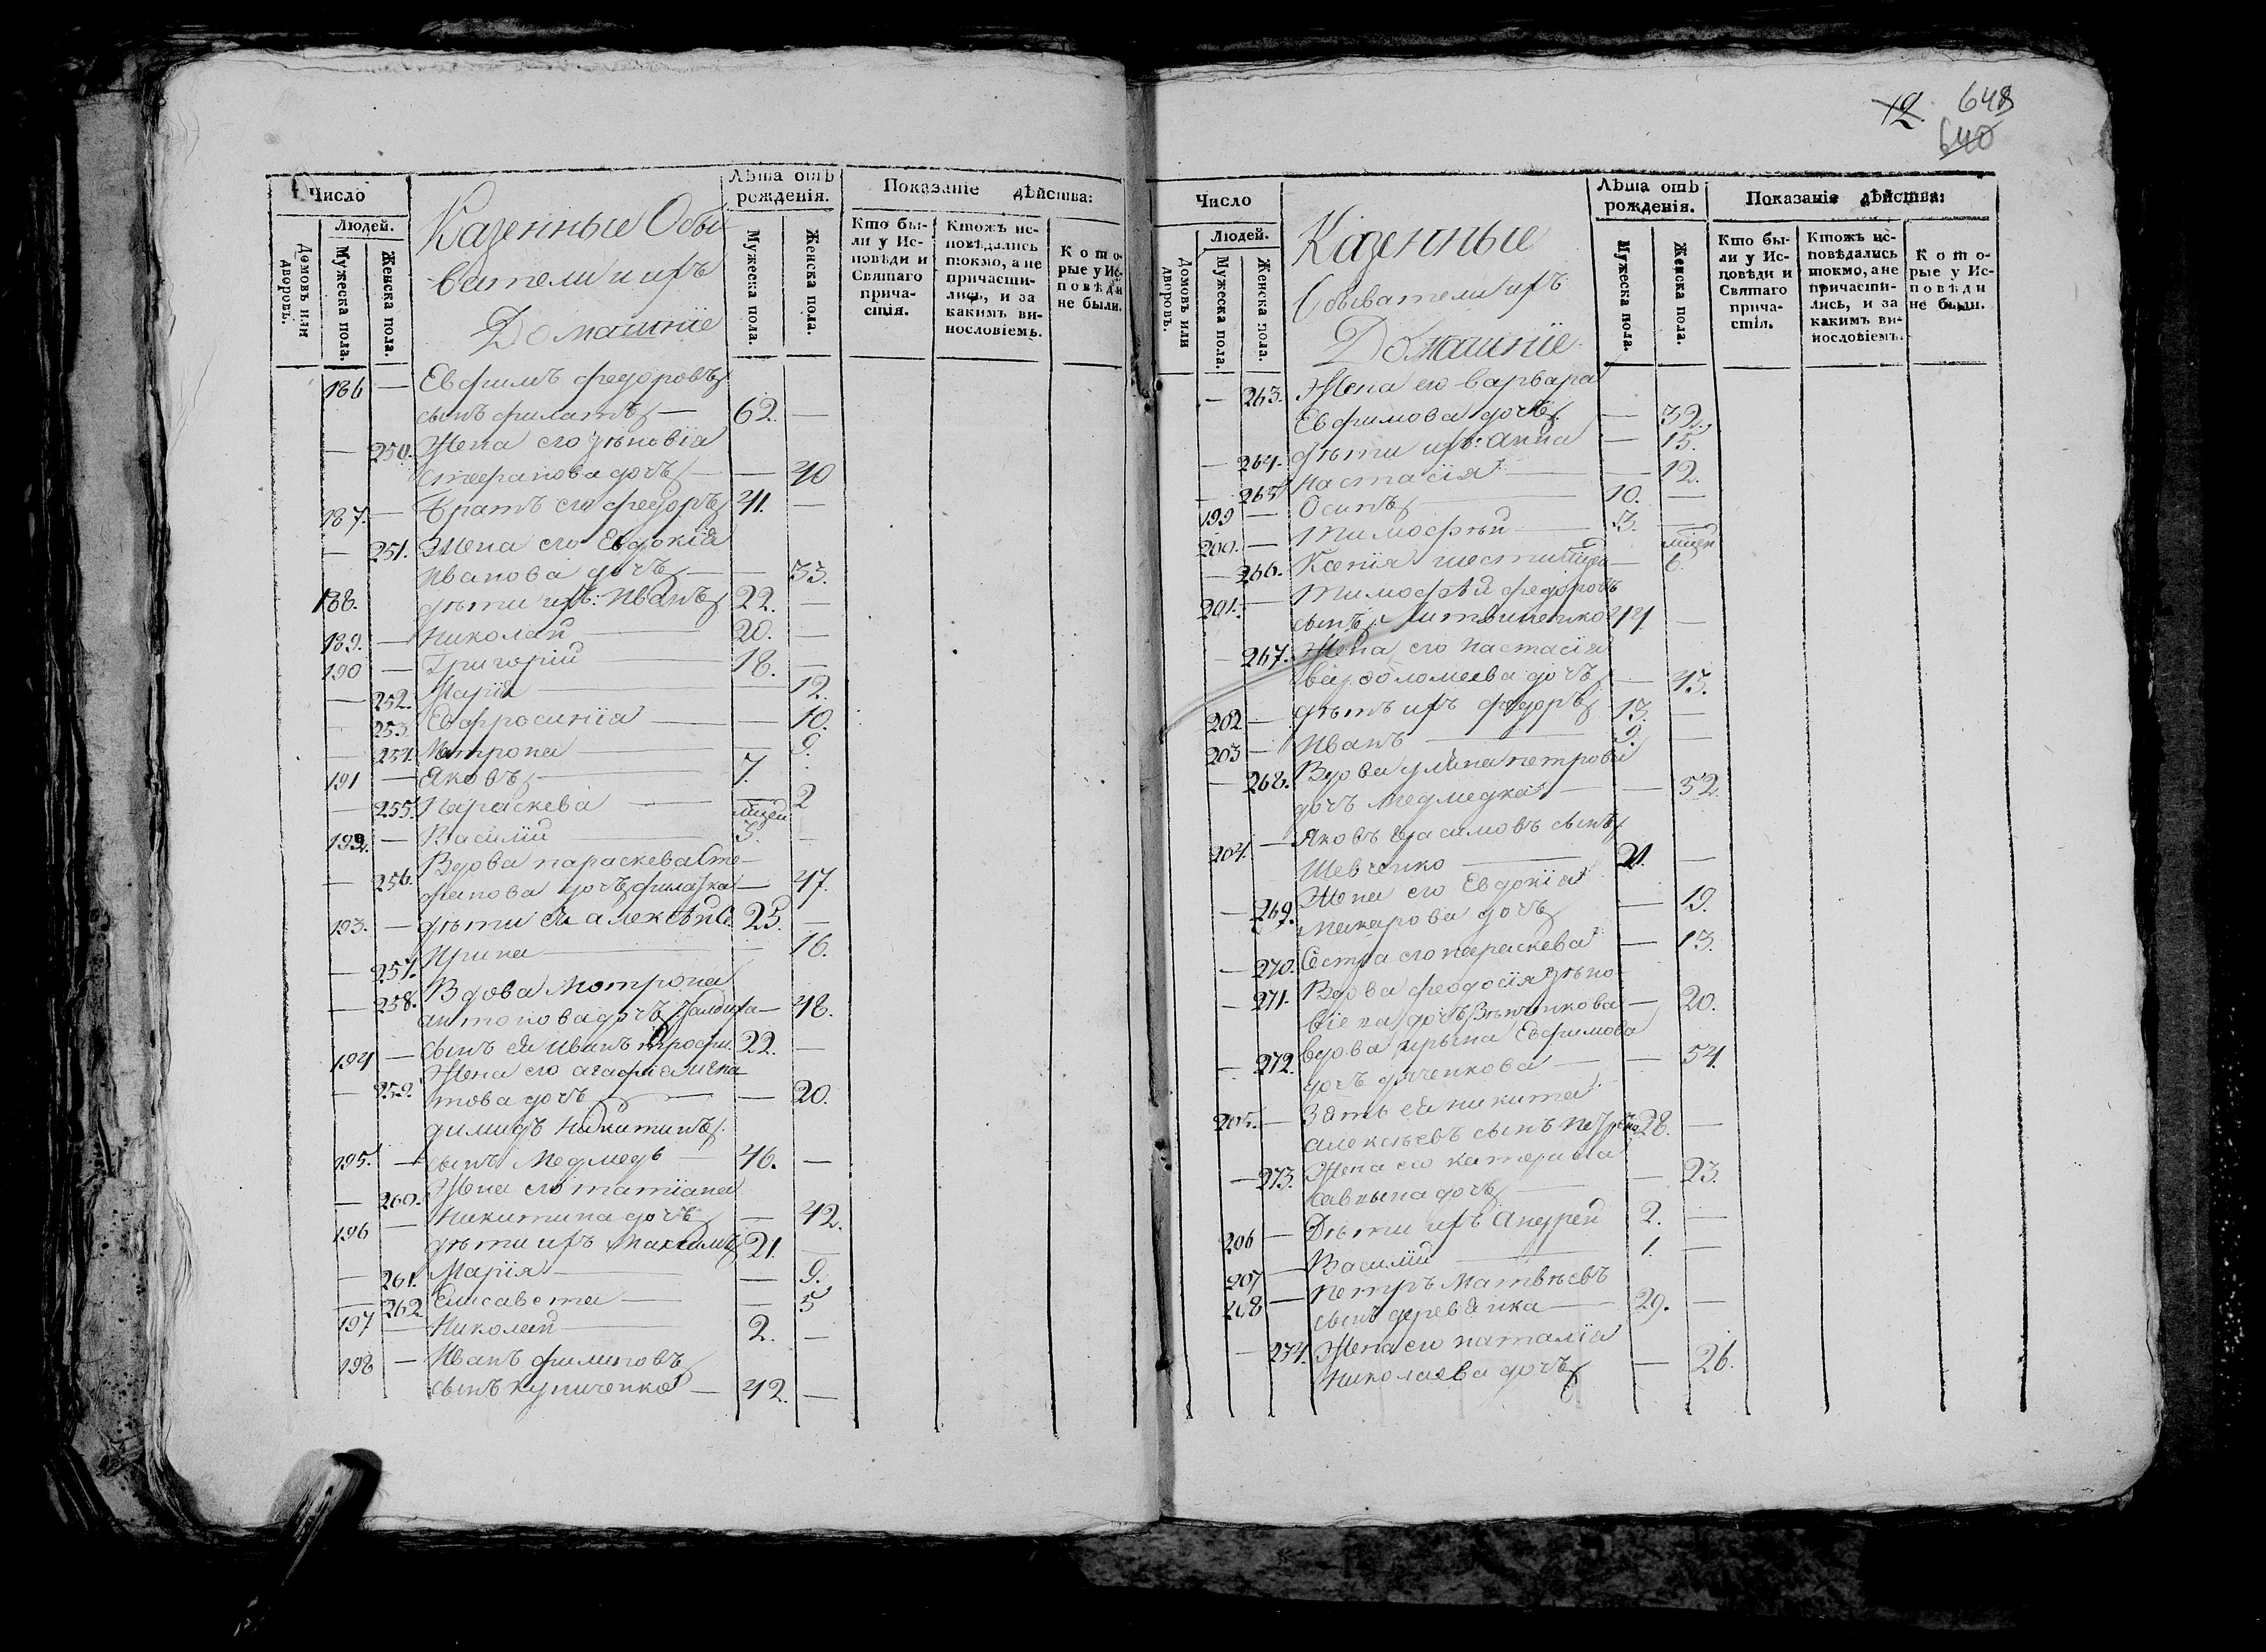 Число
Людей.
Домовъ или дворовъ.
Мужеска пола.
Женска пола.
Казенные Обы-
ватели и ихъ
Домашніе
Лѣта отъ рожденія.
Мужеска пола.
Женска пола.
Показаніе дѣйства:
Кто бы-
ли у Ис-
повѣди и
Святаго
прича-
стія.
Ктожъ ис-
повѣдались
токмо, а не
причасти-
лись, и за
какимъ ви-
нословіемъ.
Кото-
рые у Ис-
повѣди
не были.
186 — Евфимъ федоровъ
сынъ филатъ — 62. —
— 250. Жена его зѣновіа
стефанова дочь — — 40
187. — Братъ его федоръ 41. —
— 251. Жена его Евдокіа
иванова дочь — — 33.
188. дѣти ихъ: иванъ 22. —
189. — николай — 20. —
190 — Григорій — 18. —
— 252. Марія — — 12.
— 253. Евфросиніа — — 10.
— 254. Мотрона — — 9.
191 — Яковъ — 7.
— 255. Параскева — — 2
192. — Василій — мцей 3. —
— 256. Вдова параскева Сте-
фанова дочь — 47.
193. — дѣти ея алексѣй 25. —
— 257. Ирина — — 16.
— 258. Вдова Мотрона
антонова дочь — 48.
194 — сынъ ея иванъ трофи. 22. —
— 259. Жена его агафіа игна
това дочь — — 20.
димидъ никитинъ
195. — сынъ Медмедь — 46. —
— 260. Жена его татіана
никитина дочь — 42.
196 — дѣти ихъ Максимъ 21. —
— 261. Марія — — 9.
— 262 Елисавета — — 5
197 — Николай — 2. —
198 — Иванъ филиповъ
сынъ купиченко — 42. —
12. 648
640
Число
Людей.
Домовъ или дворовъ.
Мужеска пола.
Женска пола.
Казенные
Обыватели ихъ
Домашніе
Лѣта отъ рожденія.
Мужеска пола.
Женска пола.
Показаніе дѣйства:
Кто бы-
ли у Ис-
повѣди и
Святаго
прича-
стія.
Ктожъ ис-
повѣдались
токмо, а не
причасти-
лись, и за
какимъ ви-
нословіемъ.
Кото-
рые у Ис-
повѣди
не были.
— 263. Жена его варвара
Евфимова дочь — 32.
— 264. дѣти ихъ: анна — 15.
— 265 настасія — — 12.
199 — Осипъ — 10. —
200. — Тимофѣй — 3. —
— 266. Ксенія шести — мцей 6.
201. — Тимофѣй федоровъ
сынъ Литвиненко 44 —
— 267. Жена его настасія
варѳоломеева дочь — 43.
202 — дѣти ихъ федоръ 13. —
203 — иванъ — 9. —
— 268. Вдова улина петрова
дочь медмедка — — 52.
204. — Яковъ герасимовъ сынъ
Шевченко — 21. —
— 269. Жена его Евдокіа
макарова дочь — 19.
— 270. Сестра его параскева — 13.
— 271. Вдова феодосія зѣно-
віена дочь — 20.
— 272. вдова ирына Евфимова
дочь дяченкова — — 54.
205. — Зять ея никита
алексѣевъ сынъ 28. —
— 273. Жена его катерына
савкына дочь — — 23.
206 — Дѣти ихъ андрей 2. —
207 — Василій — 1. —
208 — Петръ Матвѣевъ
сынъ деревянка — 29. —
— 274. Жена его наталіа
николаева дочь — 26.